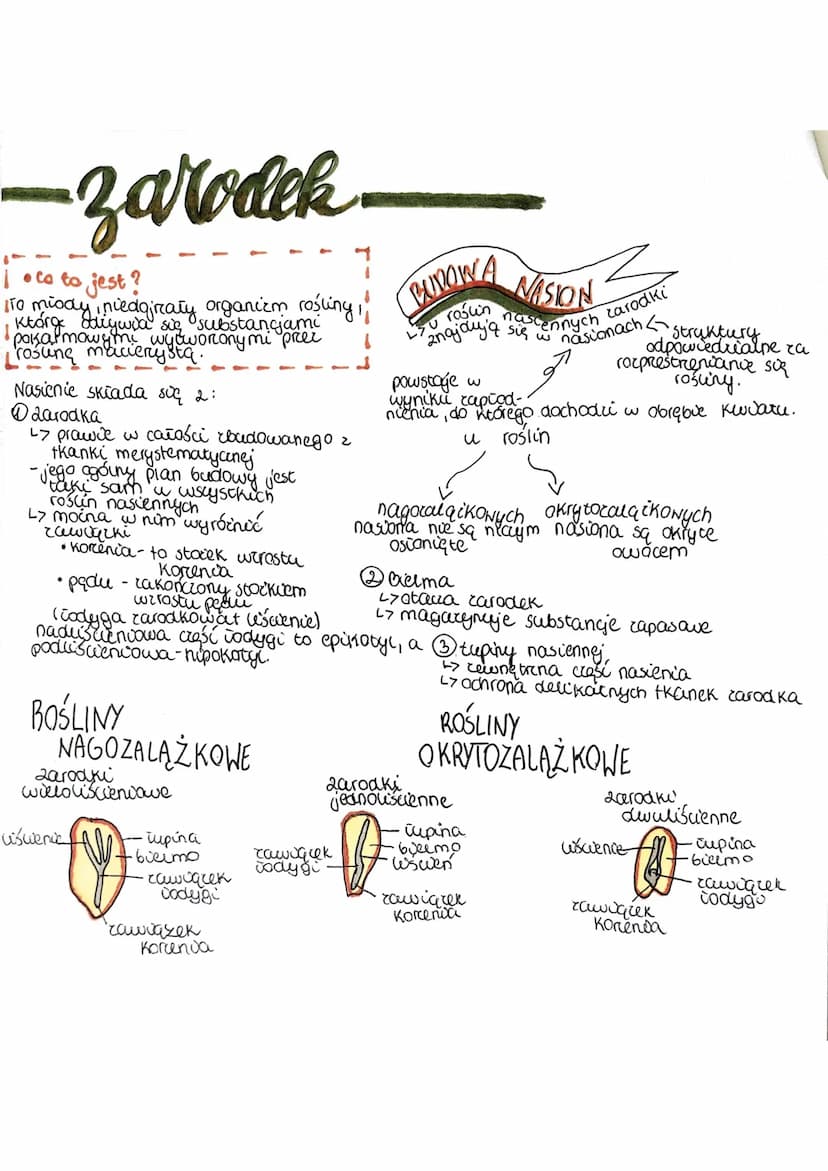 zarodek
• co to jest?
To młody, niedojrzały organizm rośliny,
która odżywia się substancjami
pokarmowymi wytworzonymi przez
roślinę macierzystą.
BUDOWA NASION
↳ u roślin nasiennych zarodki
znajdują się w nasionach
struktury
odpowiedzialne za
rozprzestrzenianie się
rośliny.
powstaje w
wyniku zapłod-
nienia, do którego dochodzi w obrębie kwiatu.
u roślin
nagozalążkowych
nasiona nie są niczym
osłonięte
okrytozalążkowych
nasiona są okryte
owocem
Nasienie składa się z:
① zarodka
↳ prawie w całości zbudowanego z
tkanki merystematycznej
- jego ogólny plan budowy jest
taki sam u wszystkich
roślin nasiennych
↳ można w nim wyróżnić
zawiązki
• korzenia - to stożek wzrostu
korzenia
• pędu - zakończony stożkiem
wzrostu pędu
(łodyga zarodkowa + liścienie)
nadliścieniowa część łodygi to epikotyl, a
podliścieniowa - hipokotyl.
② bielma
↳ otacza zarodek
↳ magazynuje substancje zapasowe
③ łupiny nasiennej
↳ zewnętrzna część nasienia
↳ ochrona delikatnych tkanek zarodka
ROŚLINY
NAGOZALĄŻKOWE
zarodki
wieloliścieniowe
liścienie
łupina
bielmo
zawiązek
łodygi
zawiązek
korzenia
ROŚLINY
OKRYTOZALĄŻKOWE
zarodki
jednoliścienne
łupina
bielmo
liścień
zawiązek
łodygi
zawiązek
korzenia
zarodki
dwuliścienne
liścienie
łupina
bielmo
zawiązek
łodygi
zawiązek
korzenia